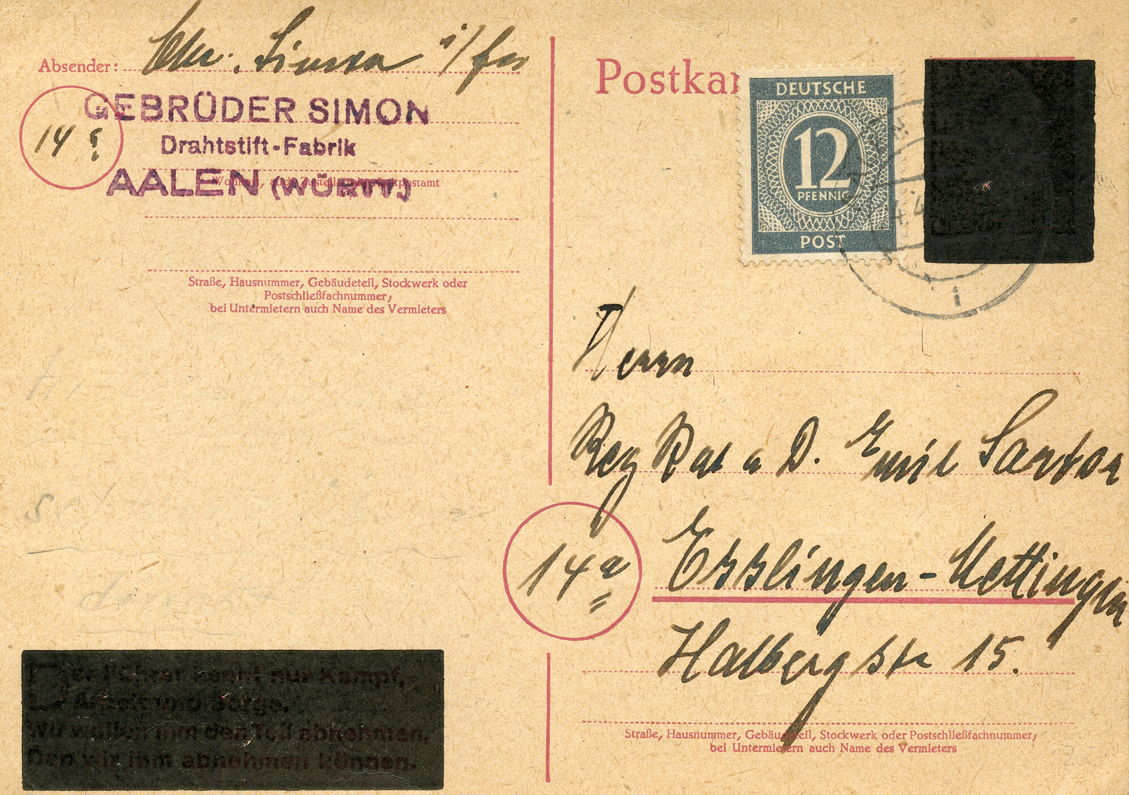 Absender: Chr. Simon
GEBRÜDER SIMON
14a
Drahtstift-Fabrik
AALEN (WÜRTT.)
Straße, Hausnummer, Gebäudeteil, Stockwerk oder
Postschließfachnummer;
bei Untermietern auch Name des Vermieters
Postkar
DEUTSCHE
12
PFENNIG
POST
Herrn
Reg Rat a D. Emil Sartor
14a
Esslingen-Mettingen
Halbergstr 15.
Straße, Hausnummer, Gebäudeteil, Stockwerk oder Postschließfachnummer;
bei Untermietern auch Name des Vermieters
Der Führer kennt nur Kampf,
Arbeit und Sorge.
Wir wollen ihm den Teil abnehmen,
Den wir ihm abnehmen können.